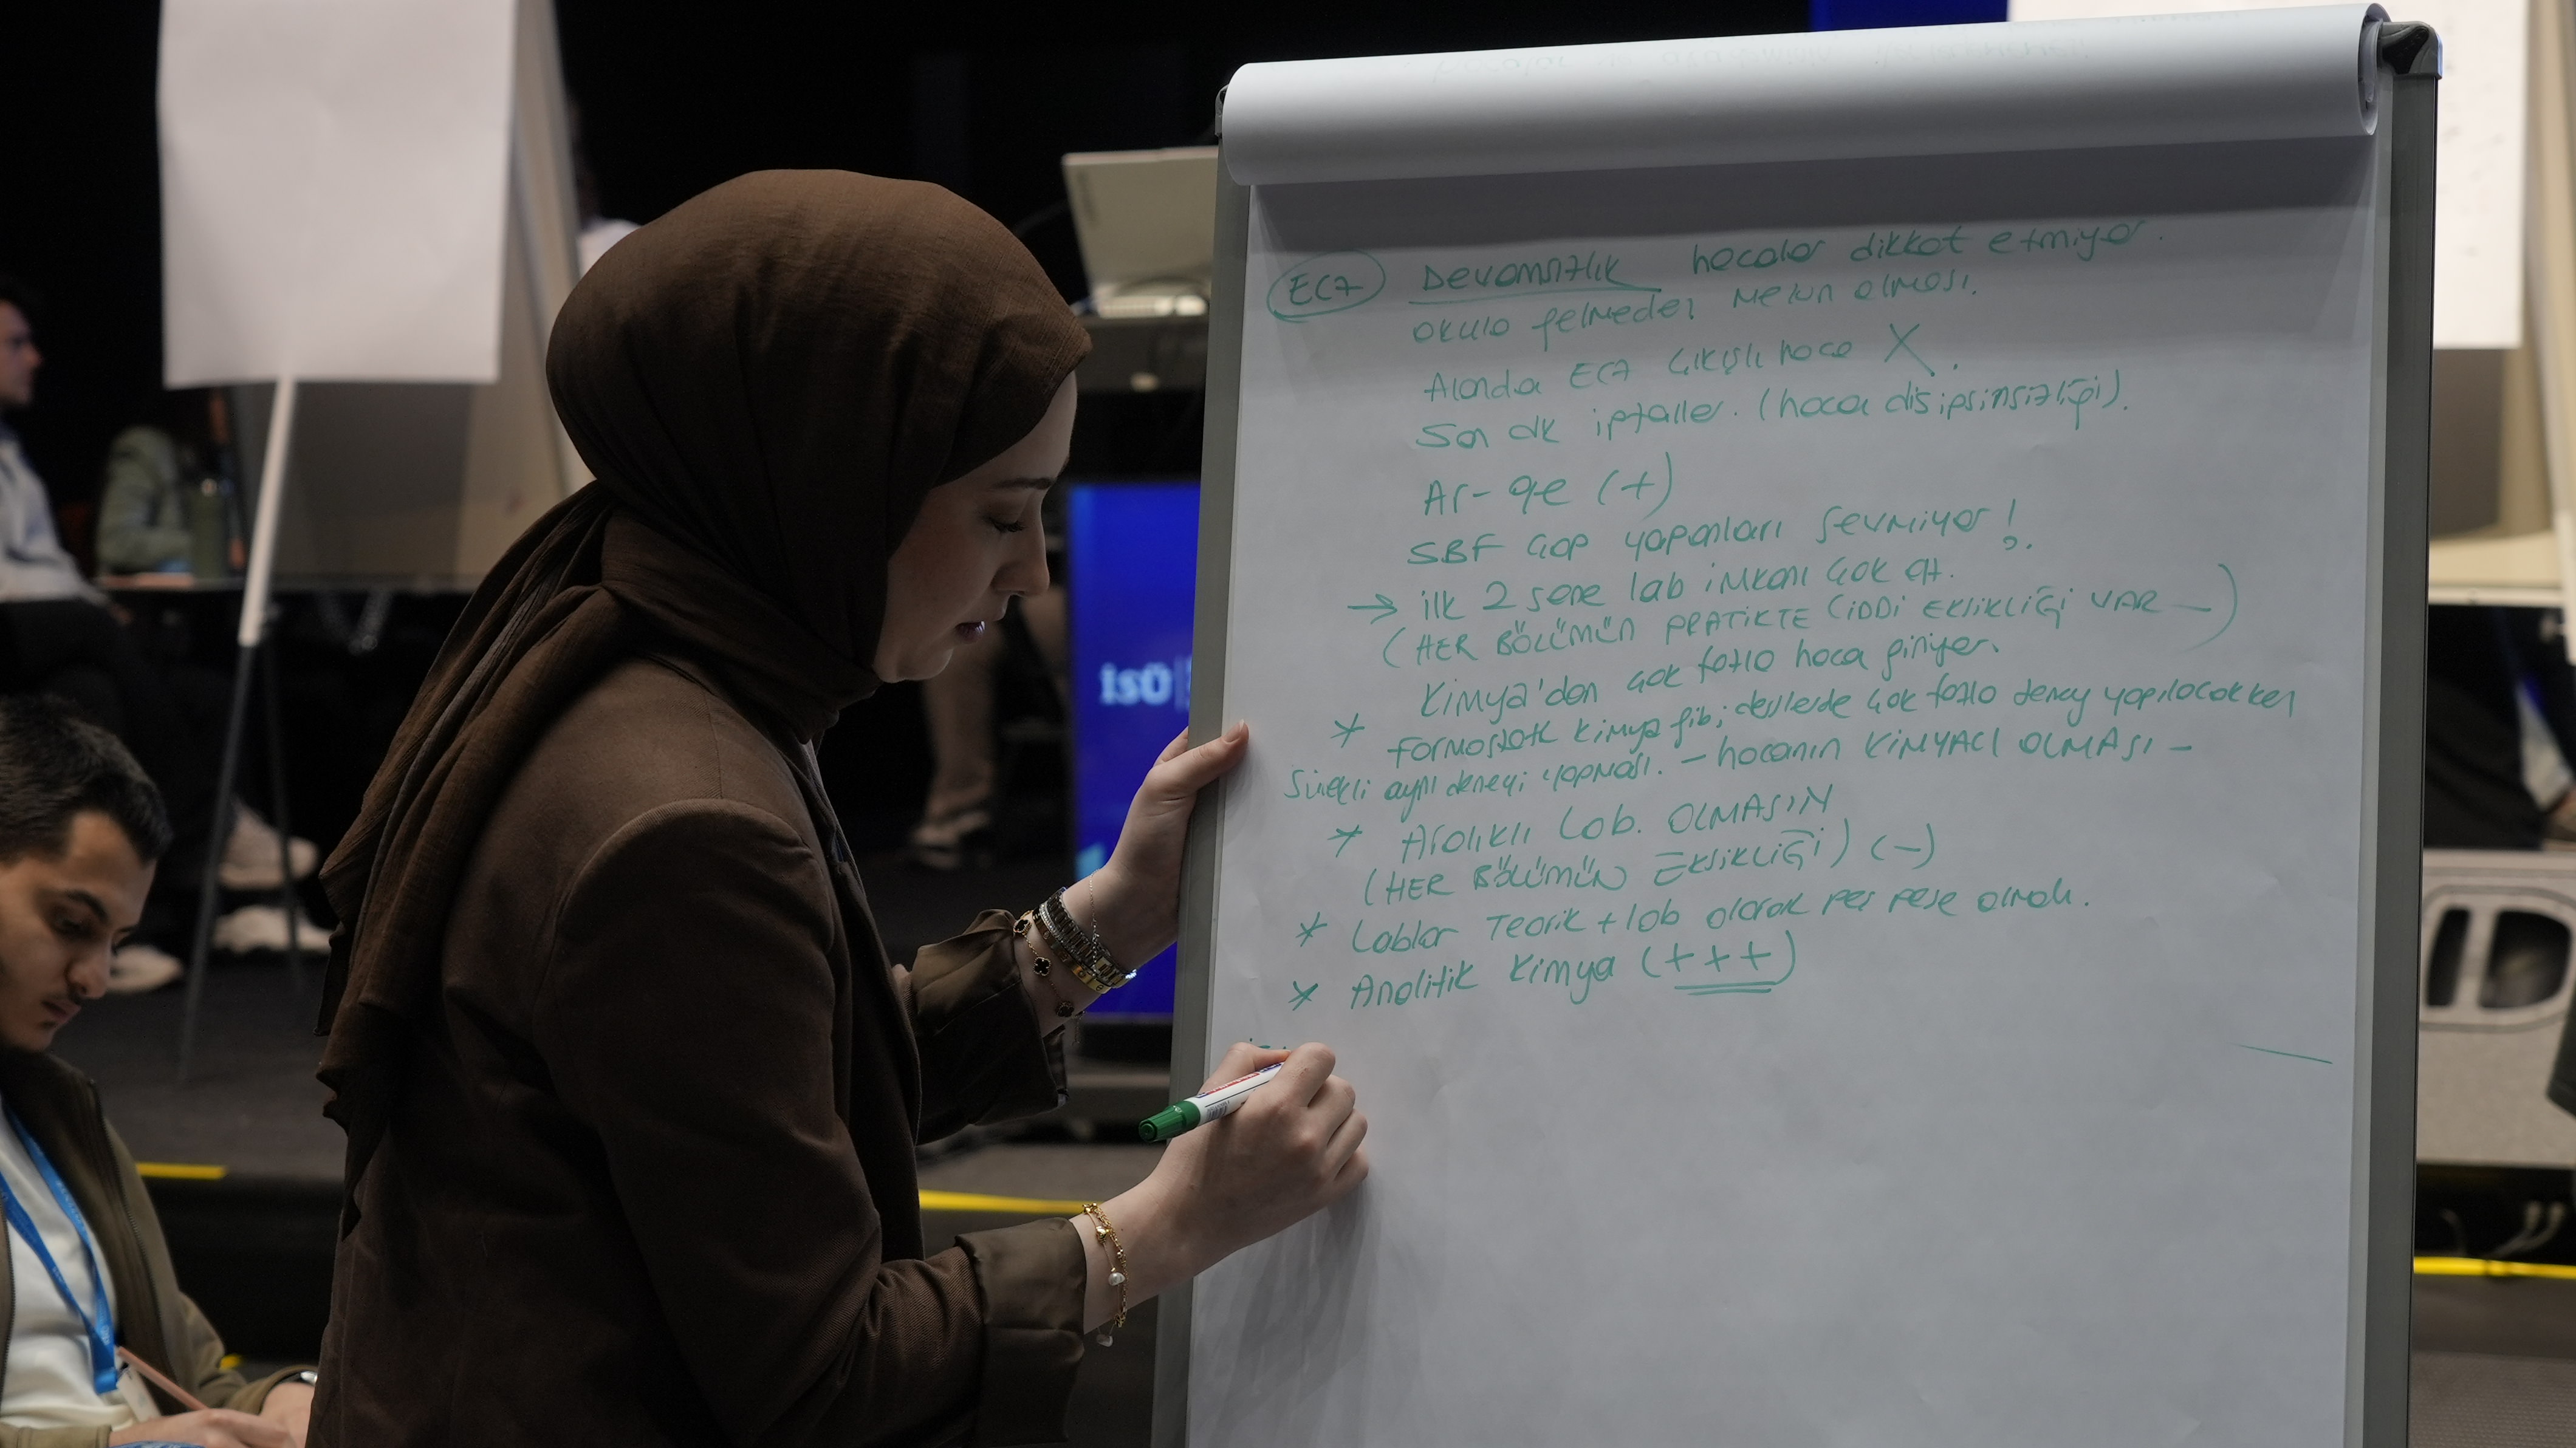 ECZ Devamsızlık hocalar dikkat etmiyor.
okula gelmeden mezun olması.
Alanda ECZ çıkışlı hoca X.
Son dk iptaller. (hoca disipsinsizliği).
Ar-ge (+)
SBF ÇAP yapanları sevmiyor!
→ ilk 2 sene lab imkanı çok az.
(HER BÖLÜMÜN PRATİKTE CİDDİ EKSİKLİĞİ VAR —)
Kimya'dan çok fazla hoca giriyor.
* Farmasötik kimya gibi derslerde çok fazla deney yapılacakken
Sürekli aynı deneyi yapması. - hocanın KİMYACI OLMASI -
* Aralıklı Lab. OLMASIN
(HER BÖLÜMÜN EKSİKLİĞİ) (-)
* Lablar Teorik + lab olarak peş peşe olmalı.
* Analitik Kimya (+++)
isü